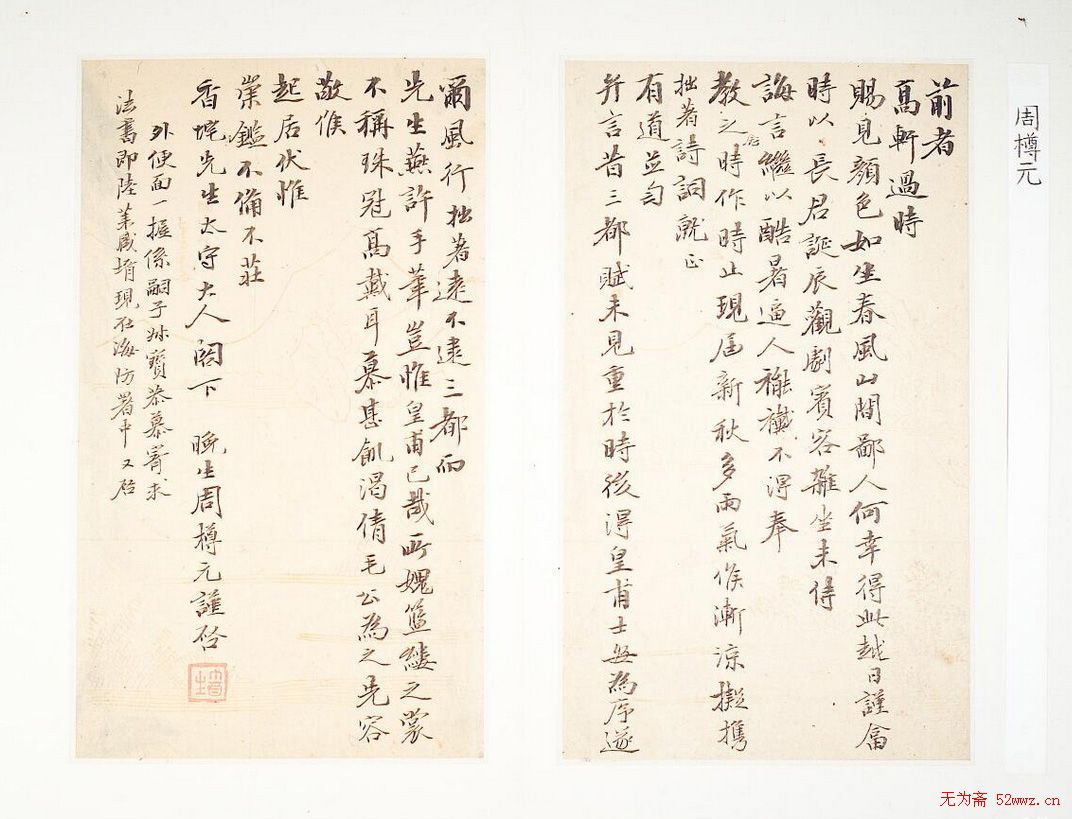 周樽元
前者
高軒過時
賜見顏色如坐春風山間鄙人何幸得此越日謹畣
時以長君誕辰觀劇賓客雜坐未侍
誨言繼以酷暑逼人褦襶不得奉
教之時作時止現屆新秋多雨氣候漸涼擬攜
拙著詩詞就正
有道並匄
弁言昔三都賦未見重於時後得皇甫士安為序遂
爾風行拙著遠不逮三都而
先生燕許手筆豈惟皇甫已哉所媿藍縷之裳
不稱珠冠高戴耳慕甚飢渴倩毛公為之先容
敬候
起居伏惟
崇鑑不備不莊
香垞先生太守大人閣下 晚生周樽元謹啓
外便面一握係嗣子 寶恭慕寄求
法書即陸 壻現在海防署中又啓
无为斋 52wwz.cn